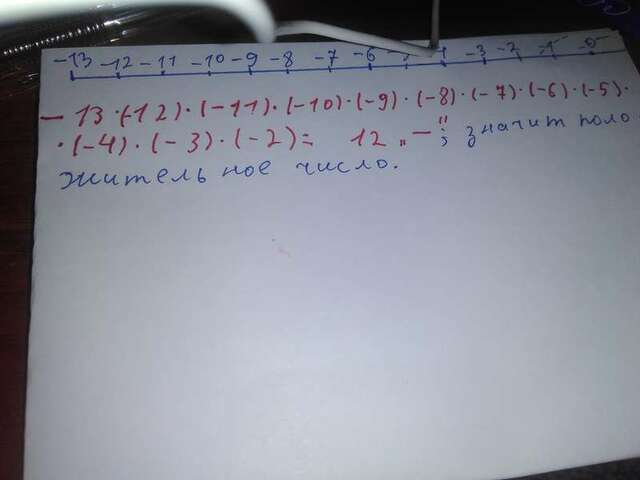 -13 -12 -11 -10 -9 -8 -7 -6 -3 -2 -1
- 13·(-12)·(-11)·(-10)·(-9)·(-8)·(-7)·(-6)·(-5)·
·(-4)·(-3)·(-2)= 12 „-“; значит поло
жительное число.